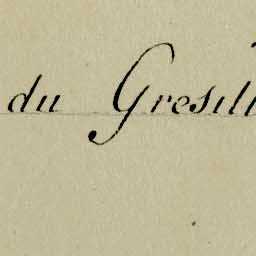 du Gresill